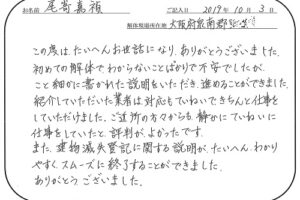 お名前 尾嵜嘉祐 ご記入日 2019年10月3日
解体現場所在地 大阪府泉南郡
この度は、たいへんお世話になり、ありがとうございました。
初めての解体でわからないことばかりで不安でしたが、
こと細かに書かれた説明をいただき、進めることができました。
紹介していただいた業者は対応もていねいできちんと仕事を
していただけました。ご近所の方々からも、静かにていねいに
仕事をしていたと、評判がよかったです。
また、建物滅失登記に関する説明が、たいへん、わかり
やすく、スムーズに終了することができました。
ありがとうございました。